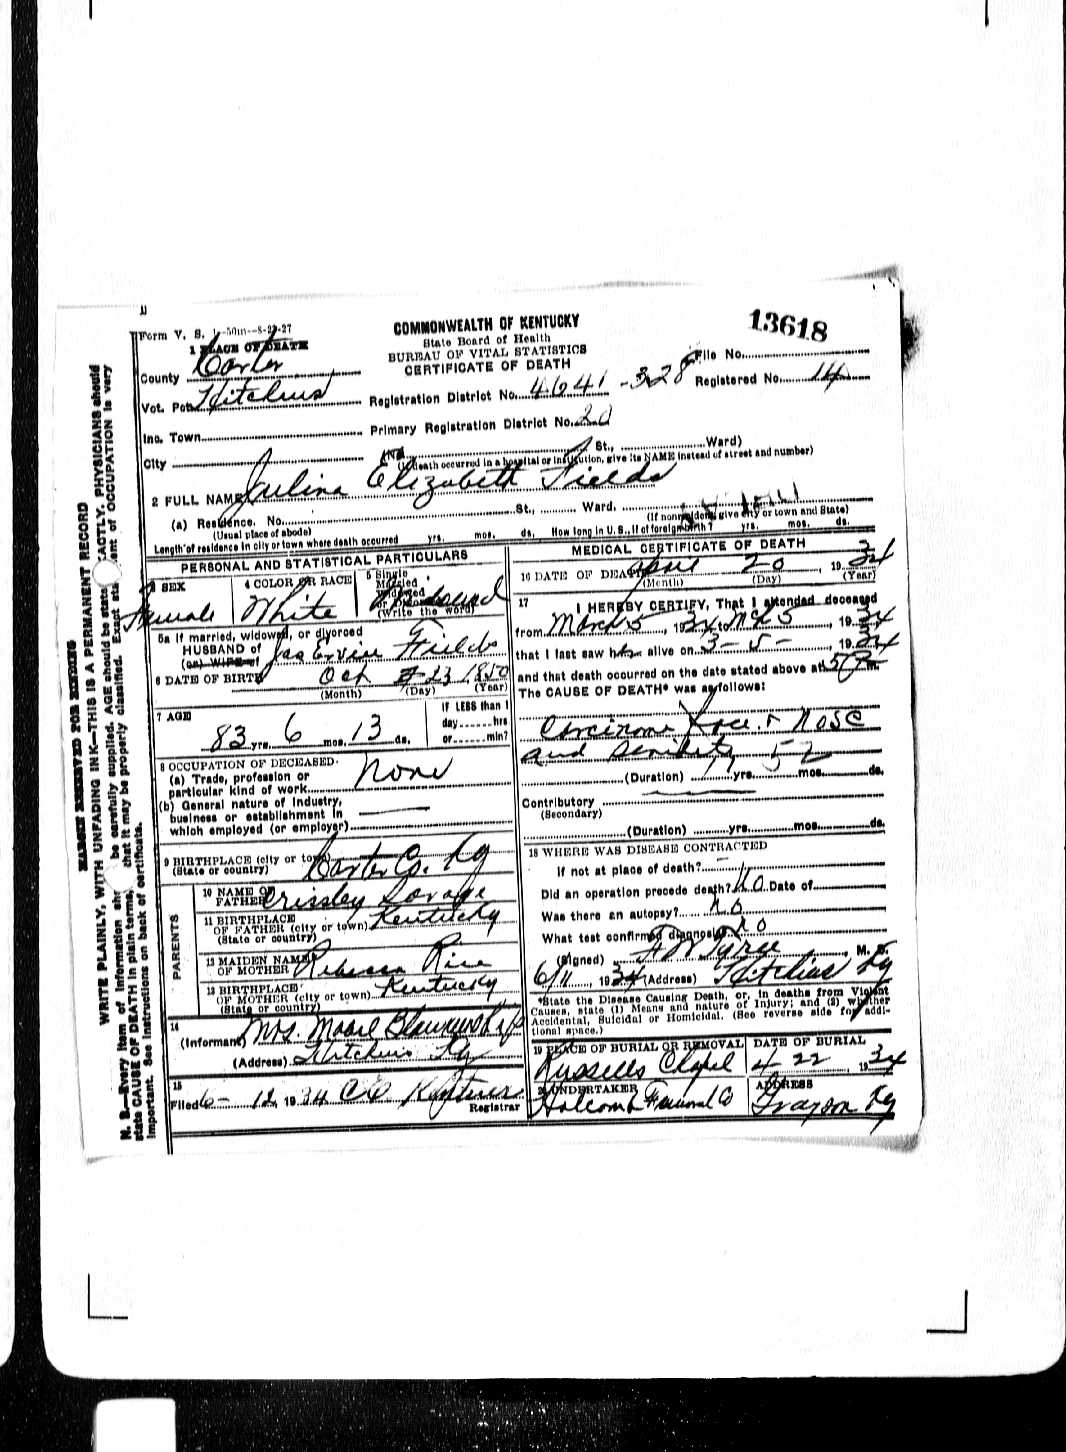 Form V. S. 1-50m--8-29-27
COMMONWEALTH OF KENTUCKY
State Board of Health
BUREAU OF VITAL STATISTICS
CERTIFICATE OF DEATH
13618
File No.
1 PLACE OF DEATH
County Carter
Registered No. 14
Vot. Pct. Hitchins
Registration District No. 4641-328
Inc. Town
Primary Registration District No. 20
City
(No. St., Ward)
(If death occurred in a hospital or institution, give its NAME instead of street and number)
2 FULL NAME Julina Elizabeth Fields
(a) Residence. No. St., Ward.
(Usual place of abode)
(If nonresident give city or town and State)
Length of residence in city or town where death occurred yrs. mos. ds. How long in U. S., if of foreign birth? yrs. mos. ds.
PERSONAL AND STATISTICAL PARTICULARS
3 SEX
Female
4 COLOR OR RACE
White
5 Single
Married
Widowed
or Divorced
(Write the word)
5a If married, widowed, or divorced
HUSBAND of
(or) WIFE of
Jas Ervine Fields
6 DATE OF BIRTH Oct 23 1850
(Month) (Day) (Year)
7 AGE
83 yrs. 6 mos. 13 ds.
If LESS than 1
day......hrs
or......min?
8 OCCUPATION OF DECEASED
(a) Trade, profession or
particular kind of work None
(b) General nature of Industry,
business or establishment in
which employed (or employer)
9 BIRTHPLACE (city or town)
(State or country)
Carter Co. Ky
PARENTS
10 NAME OF
FATHER Crissley Savage
11 BIRTHPLACE
OF FATHER (city or town) Kentucky
(State or country)
12 MAIDEN NAME
OF MOTHER Rebecca Rice
13 BIRTHPLACE
OF MOTHER (city or town) Kentucky
(State or country)
14
(Informant) Mrs. Maael
(Address) Hitchins Ky
15
Filed 6- 12, 1934
Registrar
MEDICAL CERTIFICATE OF DEATH
16 DATE OF DEATH April 20, 1934
(Month) (Day) (Year)
17 I HEREBY CERTIFY, That I attended deceased
from March 5, 1934 to 5, 1934
that I last saw her alive on 3-5-, 1934
and that death occurred on the date stated above at 5 P m.
The CAUSE OF DEATH* was as follows:
Carcinoma face & nose
and Senility 52
(Duration) yrs. mos. ds.
Contributory
(Secondary)
(Duration) yrs. mos. ds.
18 WHERE WAS DISEASE CONTRACTED
If not at place of death?
Did an operation precede death? No Date of
Was there an autopsy? No
What test confirmed diagnosis? No
(Signed) Tyree, M. D.
6/11, 1934 (Address) Hitchins Ky
*State the Disease Causing Death, or, in deaths from Violent
Causes, state (1) Means and nature of Injury; and (2) whether
Accidental, Suicidal or Homicidal. (See reverse side for addi-
tional space.)
19 PLACE OF BURIAL OR REMOVAL
Russells Chapel
DATE OF BURIAL
4-22, 1934
20 UNDERTAKER
Holcomb Funeral Co
ADDRESS
Grayson Ky
MARGIN RESERVED FOR BINDING
WRITE PLAINLY, WITH UNFADING INK—THIS IS A PERMANENT RECORD
N. B.—Every item of information should be carefully supplied. AGE should be stated EXACTLY. PHYSICIANS should
state CAUSE OF DEATH in plain terms, that it may be properly classified. Exact statement of OCCUPATION is very
important. See instructions on back of certificate.